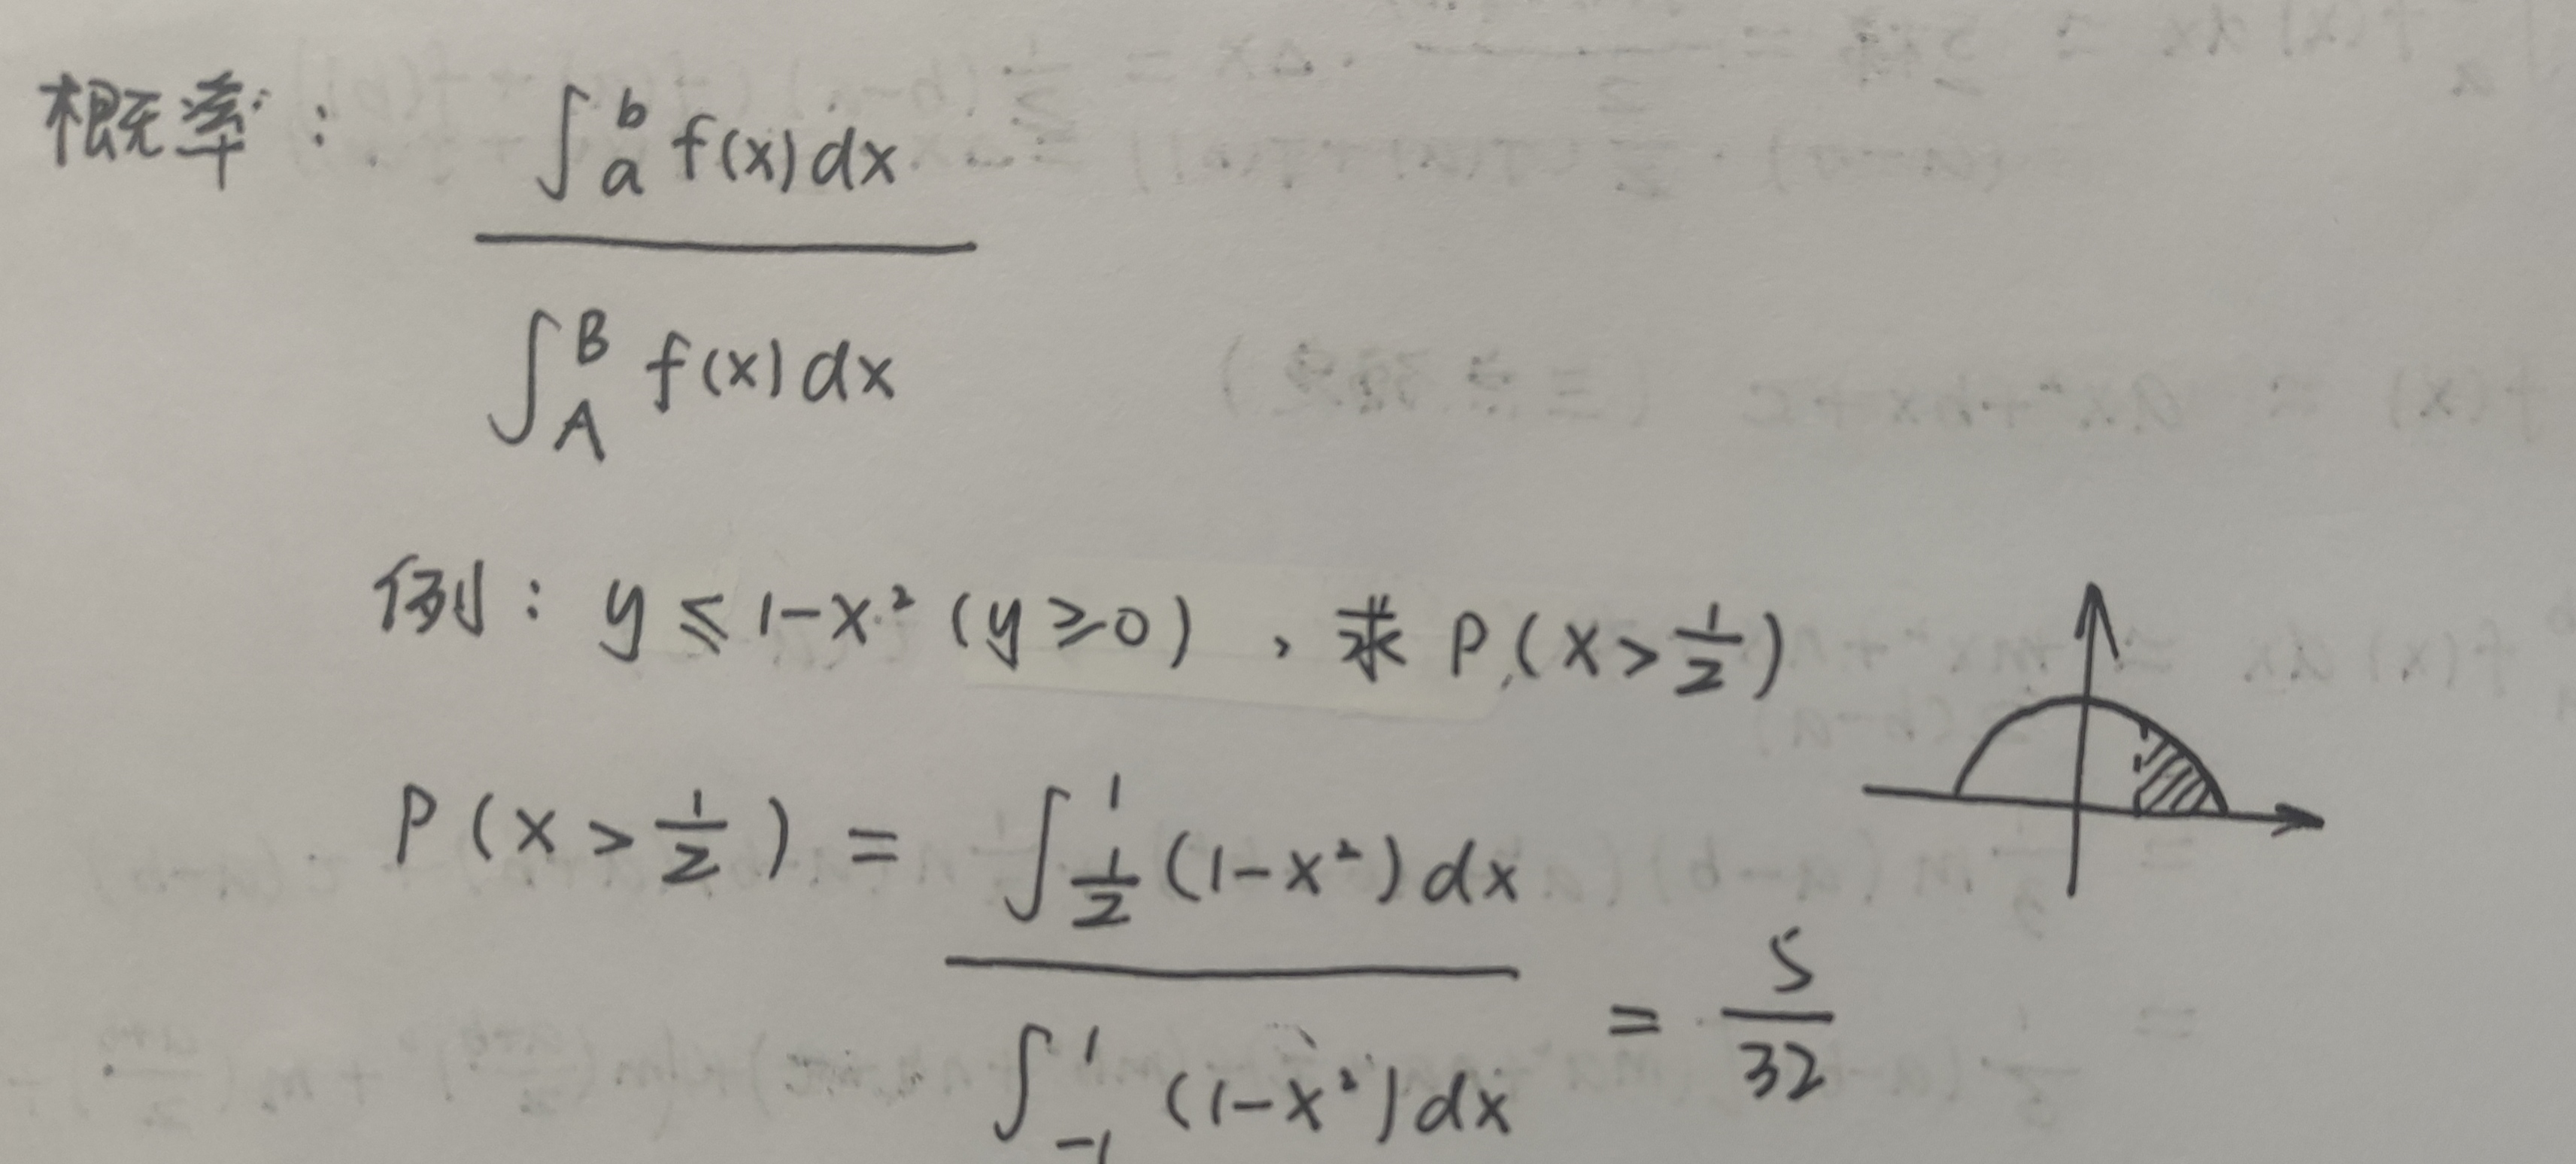 概率：∫_a^b f(x)dx / ∫_A^B f(x)dx
例：y ≤ 1-x² (y≥0)，求 P(x>1/2)
P(x>1/2) = ∫_{1/2}^1 (1-x²)dx / ∫_{-1}^1 (1-x²)dx = 5/32